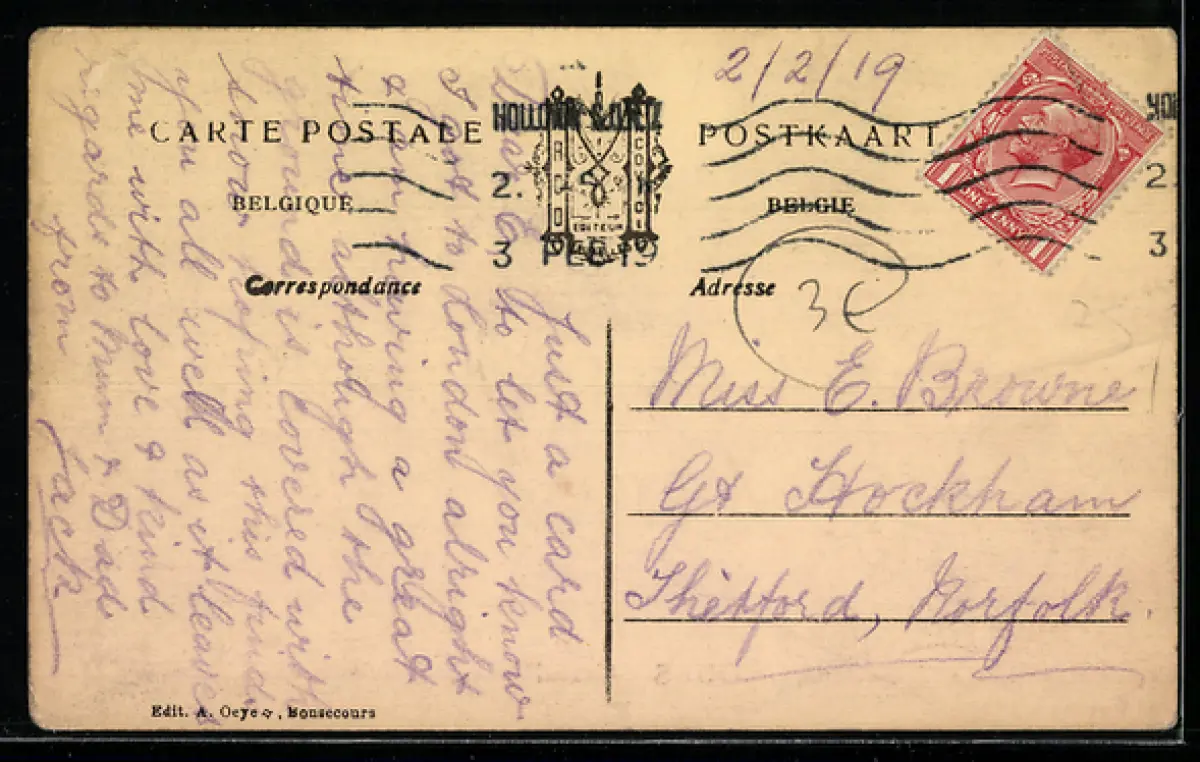 2/2/19
CARTE POSTALE
POSTKAART
BELGIQUE
BELGIE
EDITEUR
2.
3 FEB 19
2
3
ONE PENNY
Correspondance
Adresse
3€
Dear E Just a card
to let you know
I got to London alright
& am having a great
time although the
ground is covered with
snow hoping this finds
you all well as it leaves
me with love & kind
rigards to Mum & Dad
from Jack
Miss E. Browne
Gt Hockham
Thetford, Norfolk.
Edit. A. Bonsecours